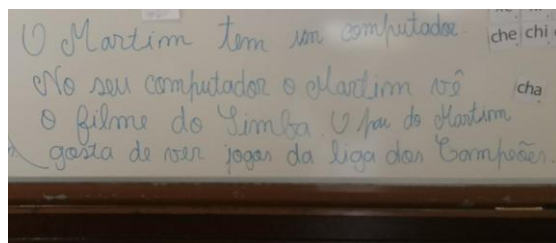 O Martim tem um computador.
No seu computador o Martim vê
o filme do Simba. O pai do Martim
gosta de ver jogos da liga dos Campeões.
che chi
cha